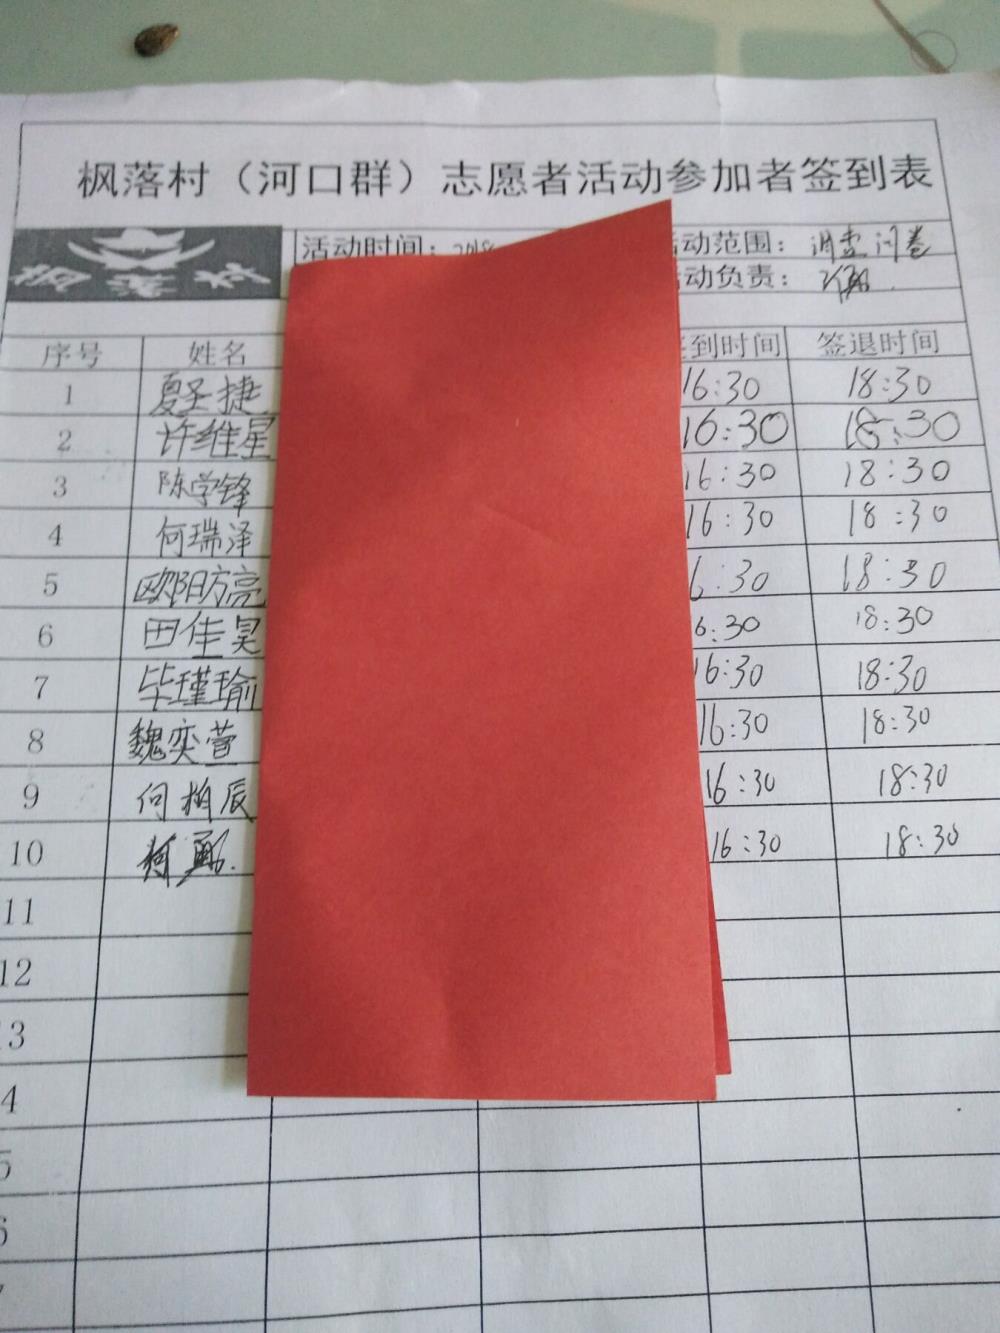 枫落村（河口群）志愿者活动参加者签到表
枫落村
活动时间：2018
活动范围：调查问卷
活动负责：
序号 姓名 到时间 签退时间
1 夏圣捷 16:30 18:30
2 许维星 16:30 18:30
3 陈学锋 16:30 18:30
4 何瑞泽 16:30 18:30
5 欧阳方亮 6:30 18:30
6 田佳昊 6:30 18:30
7 毕瑾瑜 16:30 18:30
8 魏奕萱 16:30 18:30
9 何柏辰 16:30 18:30
10 16:30 18:30
11
12
13
4
5
6
7